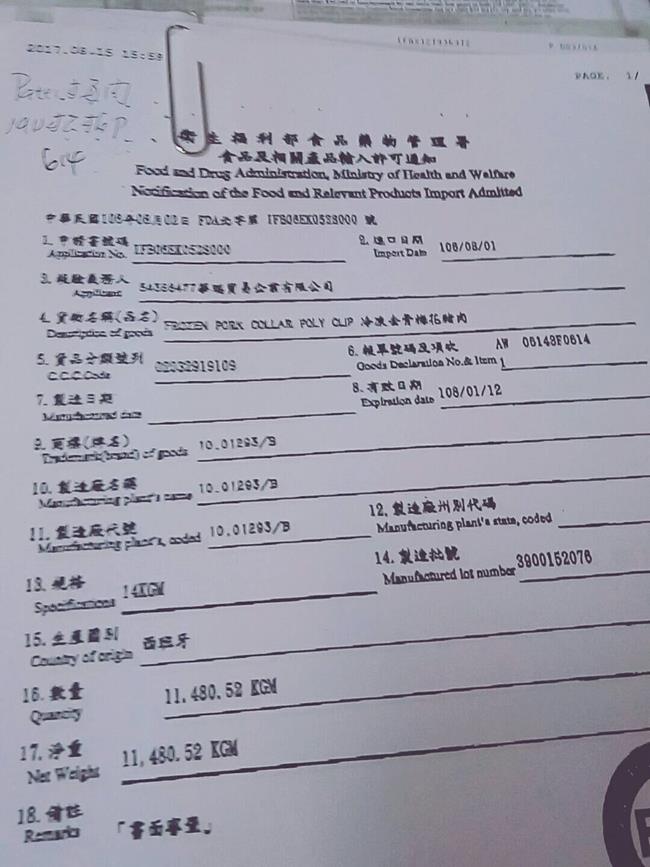 2017.06.15 15:59
PAGE. 1/
614
衛生福利部食品藥物管理署
食品及相關產品輸入許可通知
Food and Drug Administration, Ministry of Health and Welfare
Notification of the Food and Relevant Products Import Admitted
中華民國106年06月02日 FDA北字第 IFB06EK0528000 號
1. 申請書號碼 IFB06EK0528000 2. 進口日期 106/06/01
Application No. Import Date
3. 報驗義務人 54356477華瑞貿易企業有限公司
Applicant
4. 貨物名稱(品名) FROZEN PORK COLLAR POLY CLIP 冷凍去骨梅花豬肉
Description of goods
5. 貨品分類號列 02032919109 6. 報單號碼及項次 AW 06148F0614
C.C.C.Code Goods Declaration No.& Item 1
7. 製造日期 8. 有效日期 108/01/12
Manufactured date Expiration date
9. 商標(牌名) 10.01293/B
Trademark(brand) of goods
10. 製造廠名稱 10.01293/B
Manufacturing plant's name
11. 製造廠代號 10.01293/B 12. 製造廠州別代碼
Manufacturing plant's, coded Manufacturing plant's state, coded
13. 規格 14KGM 14. 製造批號 3900152076
Specifications Manufactured lot number
15. 生產國別 西班牙
Country of origin
16. 數量 11,480.52 KGM
Quantity
17. 淨重 11,480.52 KGM
Net Weight
18. 備註 「書面審查」
Remarks